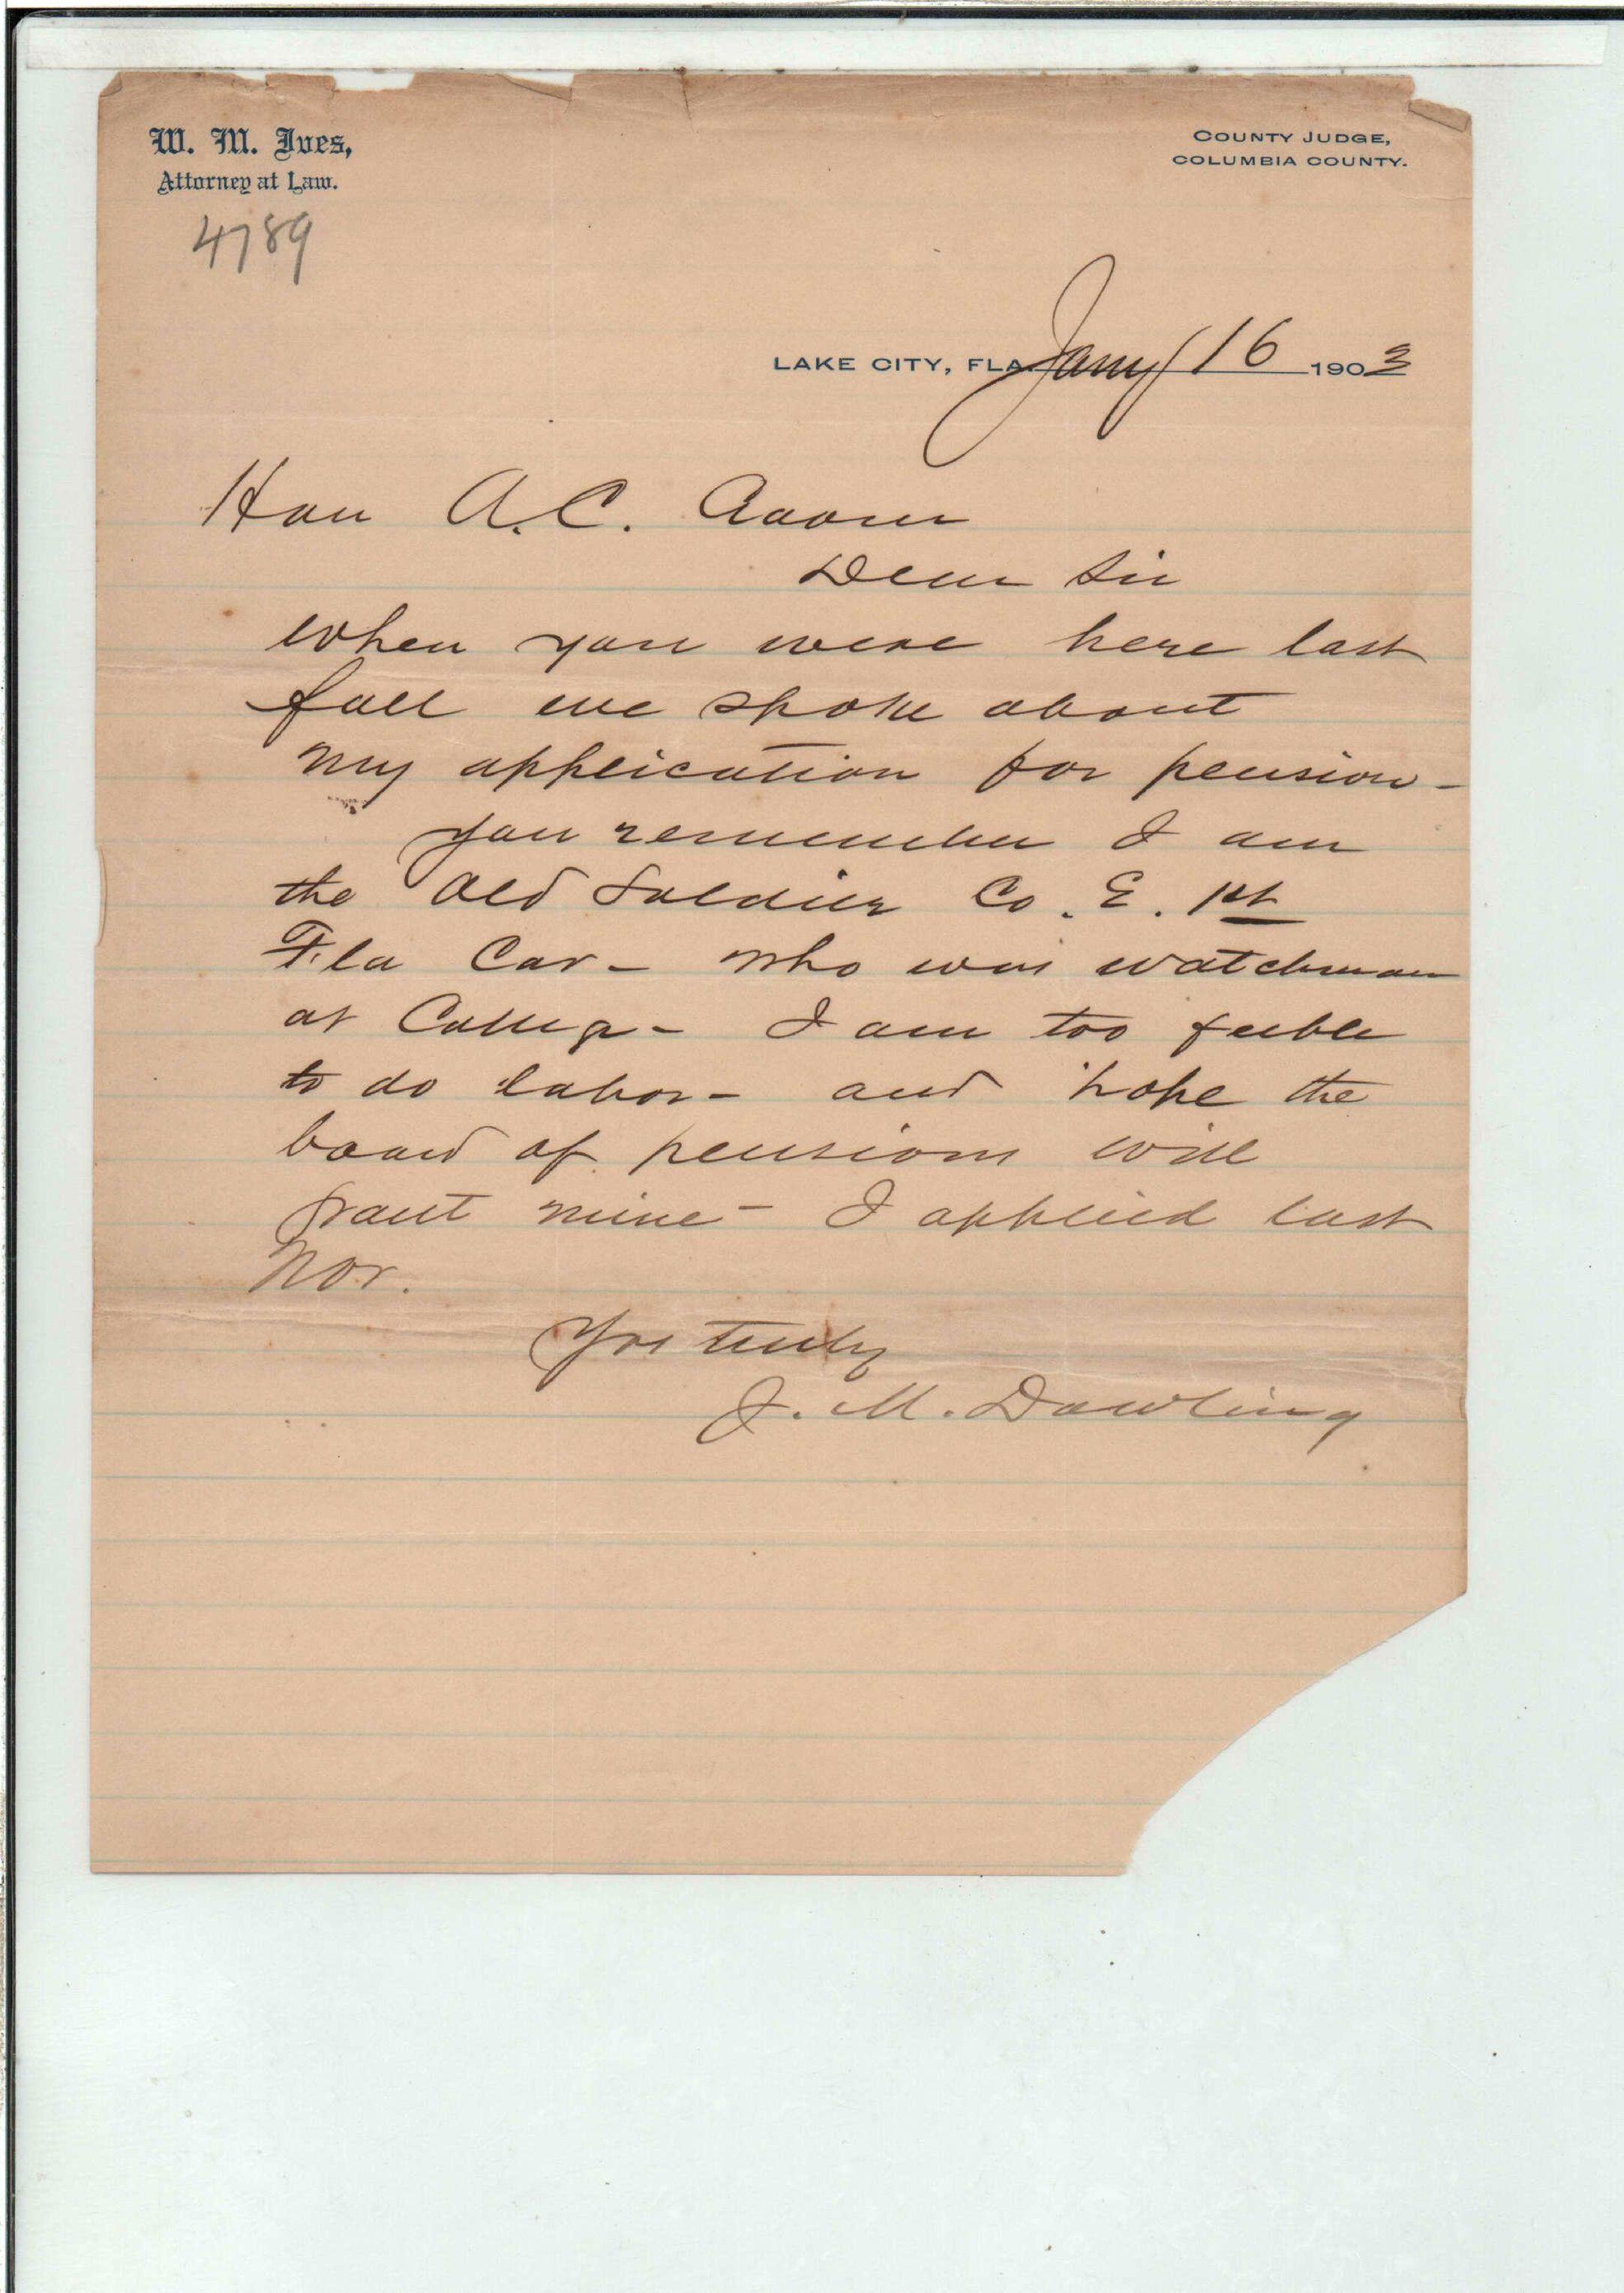 W. M. Ives,
Attorney at Law.
COUNTY JUDGE,
COLUMBIA COUNTY.
4789
LAKE CITY, FLA. Jany 16 1903
Hon A. C. Croom
Dear Sir
when you were here last
fall we spoke about
my application for pension -
you remember I am
the old Soldier Co. E. 1st
Fla Cav - who was watchman
at College - I am too feeble
to do labor - and hope the
board of pensions will
grant mine - I applied last
Nov.
Yrs truly
J. M. Dowling